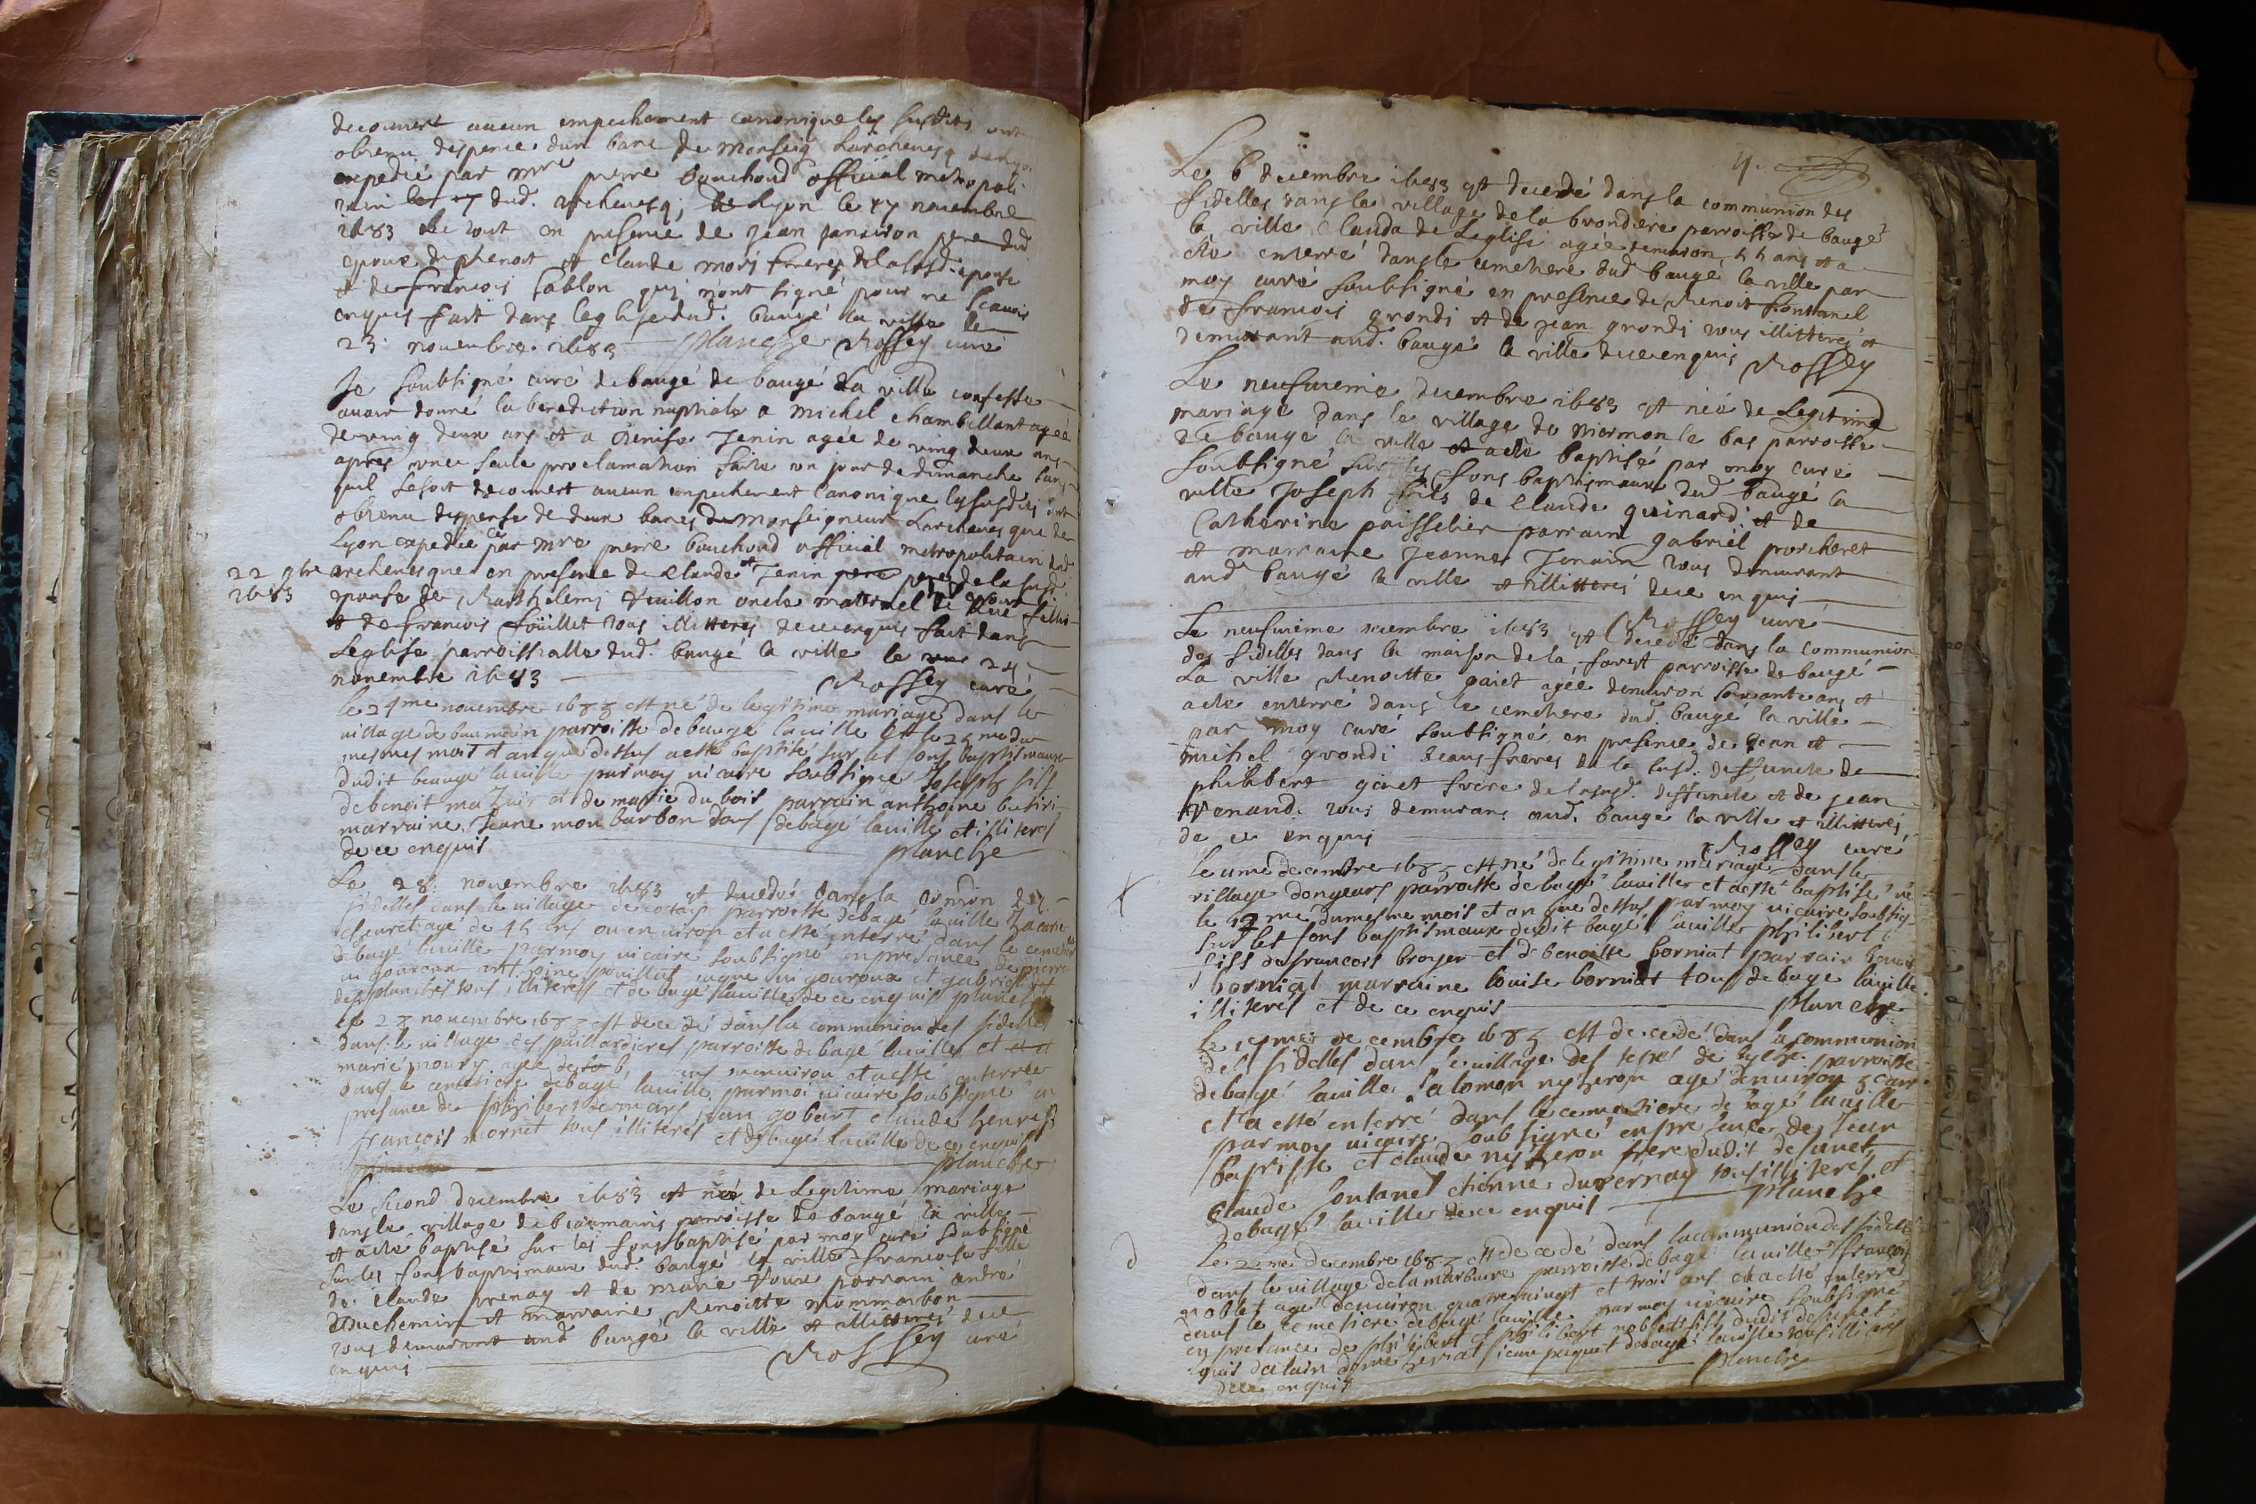 decouvert aucun empechement canonique les susdits ont
obtenu despence dun banc de Monseig Larchevesq de Lyon
expedié par mre pierre bouchoud official metropoli
tain dud. archevesq; de lyon le 17 novembre
1683 le tout en presence de jean janviron pere dud
epoux de benoit et claude mory freres de la susd. epouse
et de francois sablon qui n'ont signé pour ne scavoir
enquis fait dans leglise dud. baugé la ville le
23 novembre 1683 Planche Rossey curé
Je soubsigné curé de baugé de baugé la ville confesse
avoir donné la benediction nuptiale a michel chambillant agée
de ving deux ans et a Denise Jenin agée de ving deux ans
apres une seule proclamation faite un jour de dimanche sans
quil se soit decouvert aucun empechement canonique les susdits ont
obtenu dispense de deux bancs de Monseigneur Larchevesque de
Lyon expediée par mre pierre bouchoud official metropolitain dud
22 9bre 1683
archevesque en presence de claude Jenin pere de la susd.
epouse de Barthelemi Vuillon oncle maternel de
et de francois foüillet tous illitterés de ce enquis fait dans
Leglise parroissialle dud. baugé la ville le 24
novembre 1683 Rossey curé
le 24me novembre 1683 est né de legitime mariage dans le
village de baumain parroisse de baugé la ville et le 25me du
mesmes mois et an que dessus a esté baptisé sur les fons baptismaux
dudit baugé la ville par moy vicaire soubsigné Joseph fils
de benoit mazuir et de marie du bois parrain anthoine
marraine Jeane mon barbon tous de bagé la ville et illiteres
de ce enquis Planche
Le 28 novembre 1683 est decedé dans la comion des
fidelles dans le village de parroisse de bagé la ville
agé de 45 ans ou environ et a esté enterré dans le cemetiere
de bagé la ville par moy vicaire soubsigné en presence de pierre
anthoine pouillat et gabriel
des planches tous illiteres et de bagé la ville de ce enquis Planche
le 28 novembre 1683 est decedé dans la communion des fidelles
dans le village des paillardieres parroisse de bagé la ville et
marie moury agée de ans ou environ et a esté enterrée
dans le cemetiere de bagé la ville par moi vicaire soubsigné en
presence de philibert jean gobart claude
francois mornet tous illiterés et de bagé la ville de ce enquis
Planche
Le second decembre 1683 est née de Legitime mariage
dans le village de beaumains parroisse de baugé la ville
et a eté baptisé sur les fons baptisé par moy curé soubsigné
sur les fons baptismaux dud. baugé la ville francoise fille
de claude prenay et de marie parrain andré
duchemin et marraine Benoitte mommarbon
tous demurant aud baugé la ville et illitterés de ce
enquis Rossey curé
Le 6 decembre 1683 est decedé dans la communion des
fidelles dans le village de la brondiere parroisse de baugé
la ville Clauda de Leglise agée denviron 55 ans et a
ete enterré dans le cemetiere dud baugé la ville par
moy curé soubsigné en presence de Benoit fontanel
de francois grondi et de jean grondi tous illitterés et
demurant aud. baugé la ville de ce enquis Rossey
Le neufvieme decembre 1683 est née de Legitime
mariage dans le village de mormon le bas parroisse
de baugé la ville et a eté baptisé par moy curé
soubsigné sur les fons baptismaux dud baugé la
ville Joseph fils de claude guinard et de
Catherine paisselier parrain gabriel porcheret
et marraine Jeanne Jenain tous demurant
aud baugé la ville et illitterés de ce enquis
Rossey curé
Le neufvieme decembre 1683 est decedé dans la communion
des fidelles dans la maison de la forest parroisse de baugé
La ville Benoitte gaiet agée denviron soixante ans et
a ete enterré dans le cemetiere dud. baugé la ville
par moy curé soubsigné en presence de jean et
michel grondi beaus freres de la susd. deffuncte de
philibert gaiet frere de la susd. deffuncte et de jean
Venand. tous demurans aud. baugé la ville et illitterés
de ce enquis Rossey curé
le decembre 1683 est né de legitime mariage dans le
village dongeurs parroisse de bagé la ville et a esté baptisé
le 12me du mesme mois et an que dessus par moy vicaire soubsig
sur les fons baptismaux dudit bagé la ville philibert
fils de francois broyer et de benoitte borniat parrain benoit
borniat marraine louise borniat tous de bage la ville
illiteres et de ce enquis Planche
Le 15me decembre 1683 est decedé dans la communion
des fidelles dans le village des parroisse
de bagé la ville Salomon agé denviron ans
et a esté enterré dans le cemetiere de bagé la ville
par moy vicaire soubsigné en presence de Jean
baptiste et claude frere dudit defunct
claude fontanel etienne duvernay tous illiteres et
de bagé la ville de ce enquis Planche
Le 22me decembre 1683 est decedé dans la communion des fideles
dans le village de la marbuire parroisse de bagé la ville francois
noblet agé denviron quatrevingt et trois ans et a esté enterré
dans le cemetiere de bagé la ville par moy vicaire soubsigné
en presance de philibert et philibert noblet fils dudit defunct
jean paquet de bagé la ville tous illiteres
de ce enquis Planche